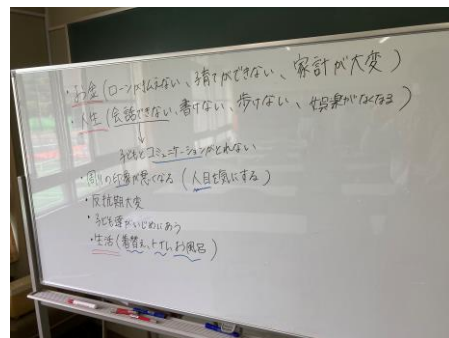 ・お金(ローンが払えない、子育てができない、家計が大変)
・人生(会話できない、書けない、歩けない、娯楽がなくなる)
↓
子どもとコミュニケーションがとれない
・周りの印象が悪くなる(人目を気にする)
・反抗期大変
・子ども達がいじめにあう
・生活(着替え、トイレ、お風呂)